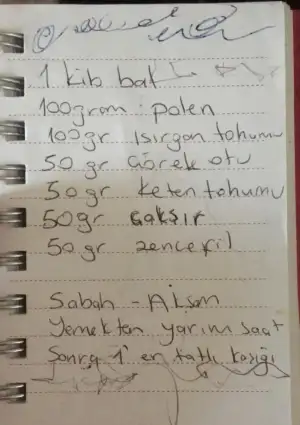 1 kib bal
100gram polen
100gr Isırgan tohumu
50 gr Çörek otu
50 gr keten tohumu
50gr Gaksır
50 gr zencefil
Sabah - Akşam
Yemekten yarım saat
Sonra 1'er tatlı kaşığı